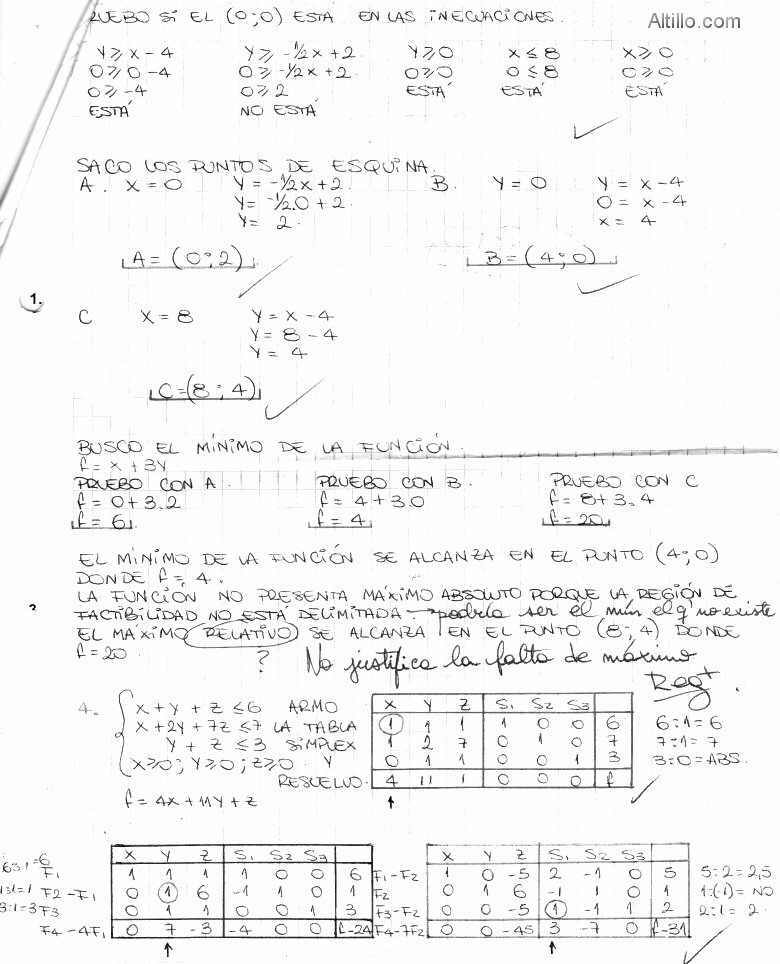 Altillo.com
PRUEBO SI EL (0;0) ESTA EN LAS INECUACIONES.
Y ≥ X - 4 Y ≥ -1/2x + 2 Y ≥ 0 X ≤ 8 X ≥ 0
0 ≥ 0 - 4 0 ≥ -1/2x + 2 0 ≥ 0 0 ≤ 8 0 ≥ 0
0 ≥ -4 0 ≥ 2 ESTÁ ESTÁ ESTÁ
ESTÁ NO ESTÁ
SACO LOS PUNTOS DE ESQUINA.
A. X = 0 Y = -1/2x + 2 B. Y = 0 Y = X - 4
Y = -1/2.0 + 2 0 = X - 4
Y = 2 X = 4
A = (0;2) B = (4;0)
1.
C X = 8 Y = X - 4
Y = 8 - 4
Y = 4
C = (8;4)
BUSCO EL MÍNIMO DE LA FUNCIÓN.
f = x + 3y
PRUEBO CON A. PRUEBO CON B. PRUEBO CON C
f = 0 + 3.2 f = 4 + 3.0 f = 8 + 3.4
f = 6 f = 4 f = 20
EL MÍNIMO DE LA FUNCIÓN SE ALCANZA EN EL PUNTO (4;0)
DONDE f = 4.
LA FUNCIÓN NO PRESENTA MÁXIMO ABSOLUTO PORQUE LA REGIÓN DE
FACTIBILIDAD NO ESTÁ DELIMITADA. podría ser el mín el q' no existe
EL MÁXIMO RELATIVO SE ALCANZA EN EL PUNTO (8;4) DONDE
f = 20
? No justifica la falta de máximo
Reg+
4. X + Y + Z ≤ 6 ARMO
X + 2Y + 7Z ≤ 7 LA TABLA
Y + Z ≤ 3 SIMPLEX
X ≥ 0; Y ≥ 0; Z ≥ 0 Y
RESUELVO.
f = 4X + 11Y + Z
X Y Z S1 S2 S3
1 1 1 1 0 0 6 6:1 = 6
1 2 7 0 1 0 7 7:1 = 7
0 1 1 0 0 1 3 3:0 = ABS.
4 11 1 0 0 0 f
X Y Z S1 S2 S3
F1 1 1 1 1 0 0 6
F2-F1 0 1 6 -1 1 0 1
3:1=3 F3 0 1 1 0 0 1 3
F4-4F1 0 7 -3 -4 0 0 f-24
X Y Z S1 S2 S3
F1-F2 1 0 -5 2 -1 0 5 5:2 = 2,5
F2 0 1 6 -1 1 0 1 1:(-1) = NO
F3-F2 0 0 -5 1 -1 1 2 2:1 = 2
F4-7F2 0 0 -45 3 -7 0 f-31